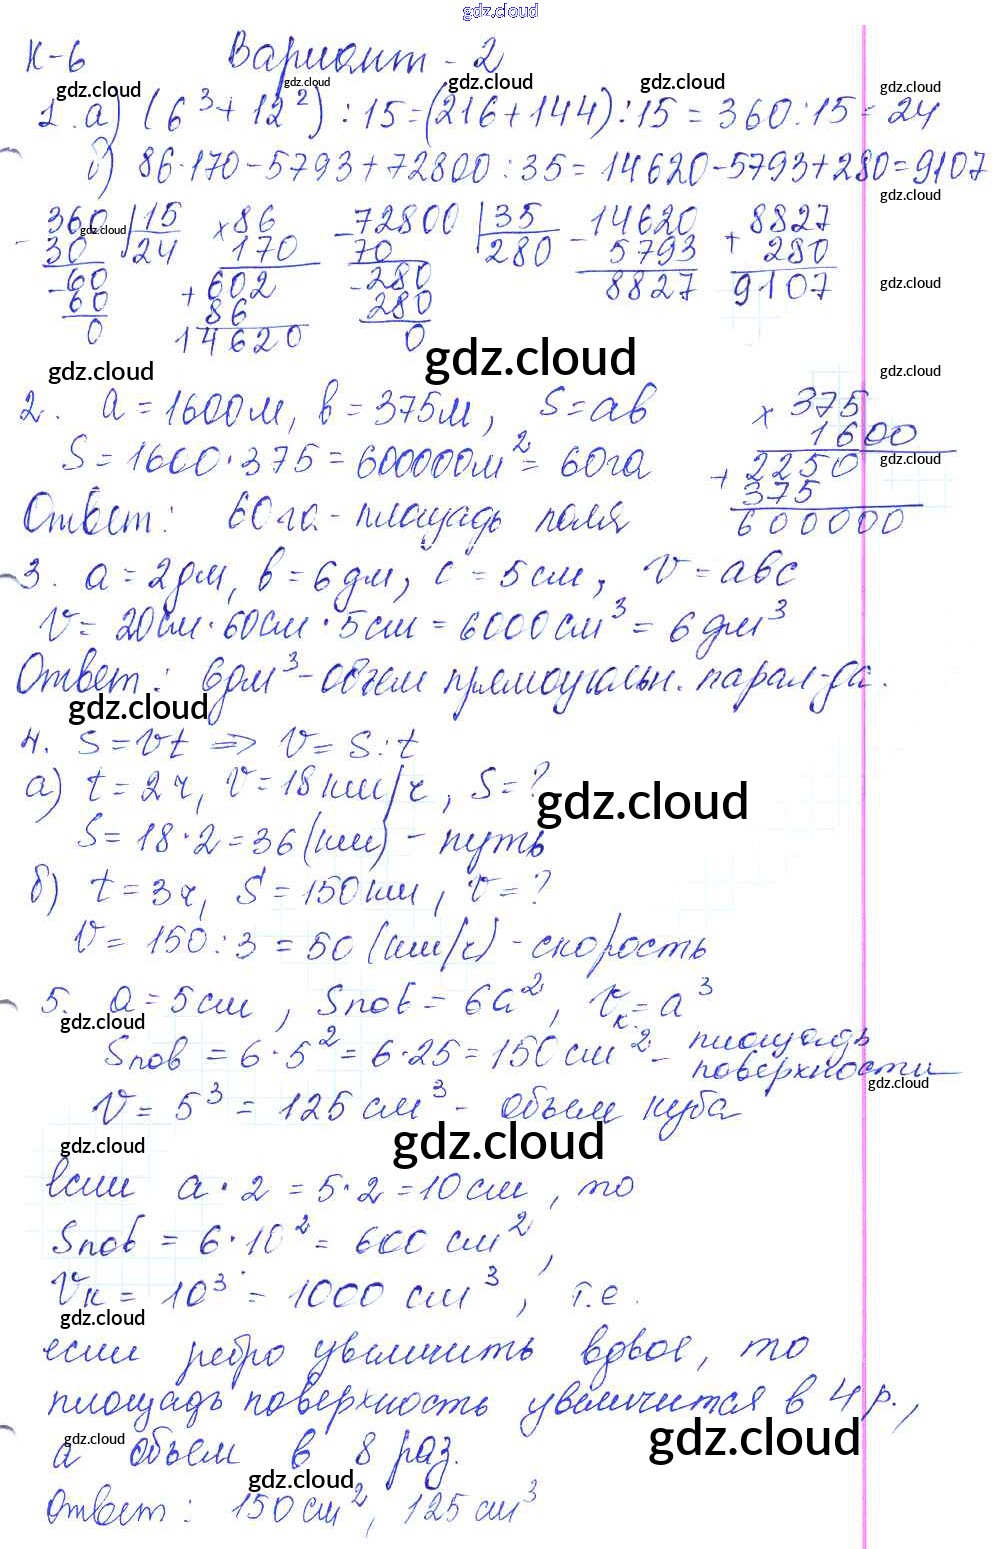 gdz.cloud
К-6 Вариант - 2
gdz.cloud gdz.cloud gdz.cloud gdz.cloud gdz.cloud
1. а) (6³ + 12²) : 15 = (216 + 144) : 15 = 360 : 15 = 24
б) 86 · 170 - 5793 + 72800 : 35 = 14620 - 5793 + 280 = 9107
gdz.cloud
- 360 | 15 × 86 - 72800 | 35 - 14620 + 8827
gdz.cloud
30 24 170 70 280 5793 280
- 60 + 602 - 280 8827 9107
gdz.cloud
60 86 280
0 14620 0
gdz.cloud gdz.cloud gdz.cloud
2. а = 1600 м, в = 375 м, S = ав × 375
1600
S = 1600 · 375 = 600000 м² = 60 га + 2250
gdz.cloud
375
Ответ: 60 га - площадь поля 600000
3. а = 2 дм, в = 6 дм, с = 5 см, V = авс
V = 20 см · 60 см · 5 см = 6000 см³ = 6 дм³
Ответ: 6 дм³ - объем прямоугольн. парал-да.
gdz.cloud
4. S = Vt => V = S : t
а) t = 2 ч, V = 18 км/ч, S = ?
gdz.cloud
S = 18 · 2 = 36 (км) - путь
б) t = 3 ч, S = 150 км, V = ?
V = 150 : 3 = 50 (км/ч) - скорость
5. а = 5 см, Sпов = 6а², Vк. = а³
gdz.cloud
Sпов = 6 · 5² = 6 · 25 = 150 см² - площадь
поверхности
gdz.cloud
V = 5³ = 125 см³ - объем куба
gdz.cloud gdz.cloud
если а · 2 = 5 · 2 = 10 см, то
Sпов = 6 · 10² = 600 см²,
Vк = 10³ = 1000 см³, т.е.
gdz.cloud
если ребро увеличить вдвое, то
площадь поверхность увеличится в 4 р.,
gdz.cloud gdz.cloud
а объем в 8 раз.
gdz.cloud
Ответ: 150 см², 125 см³